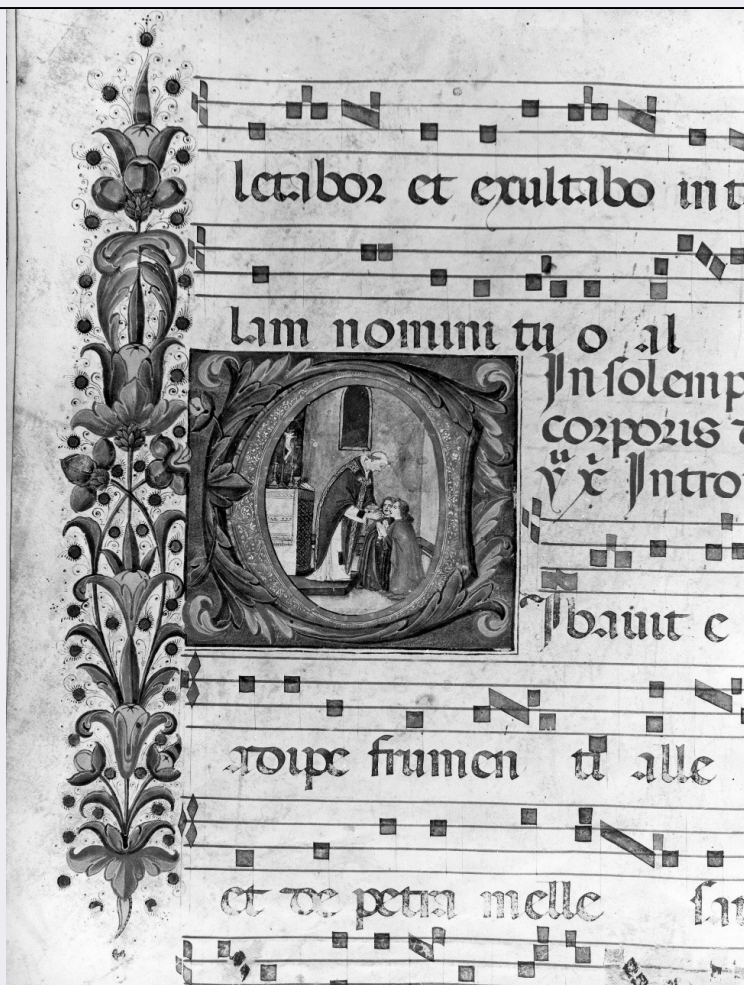 letabor et exultabo in t
lam nomini tu o al
In solemp
corporis
Intro
C
ibauit e
adipe frumen ti alle
et de petra melle